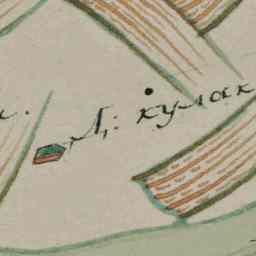 Д: кулак